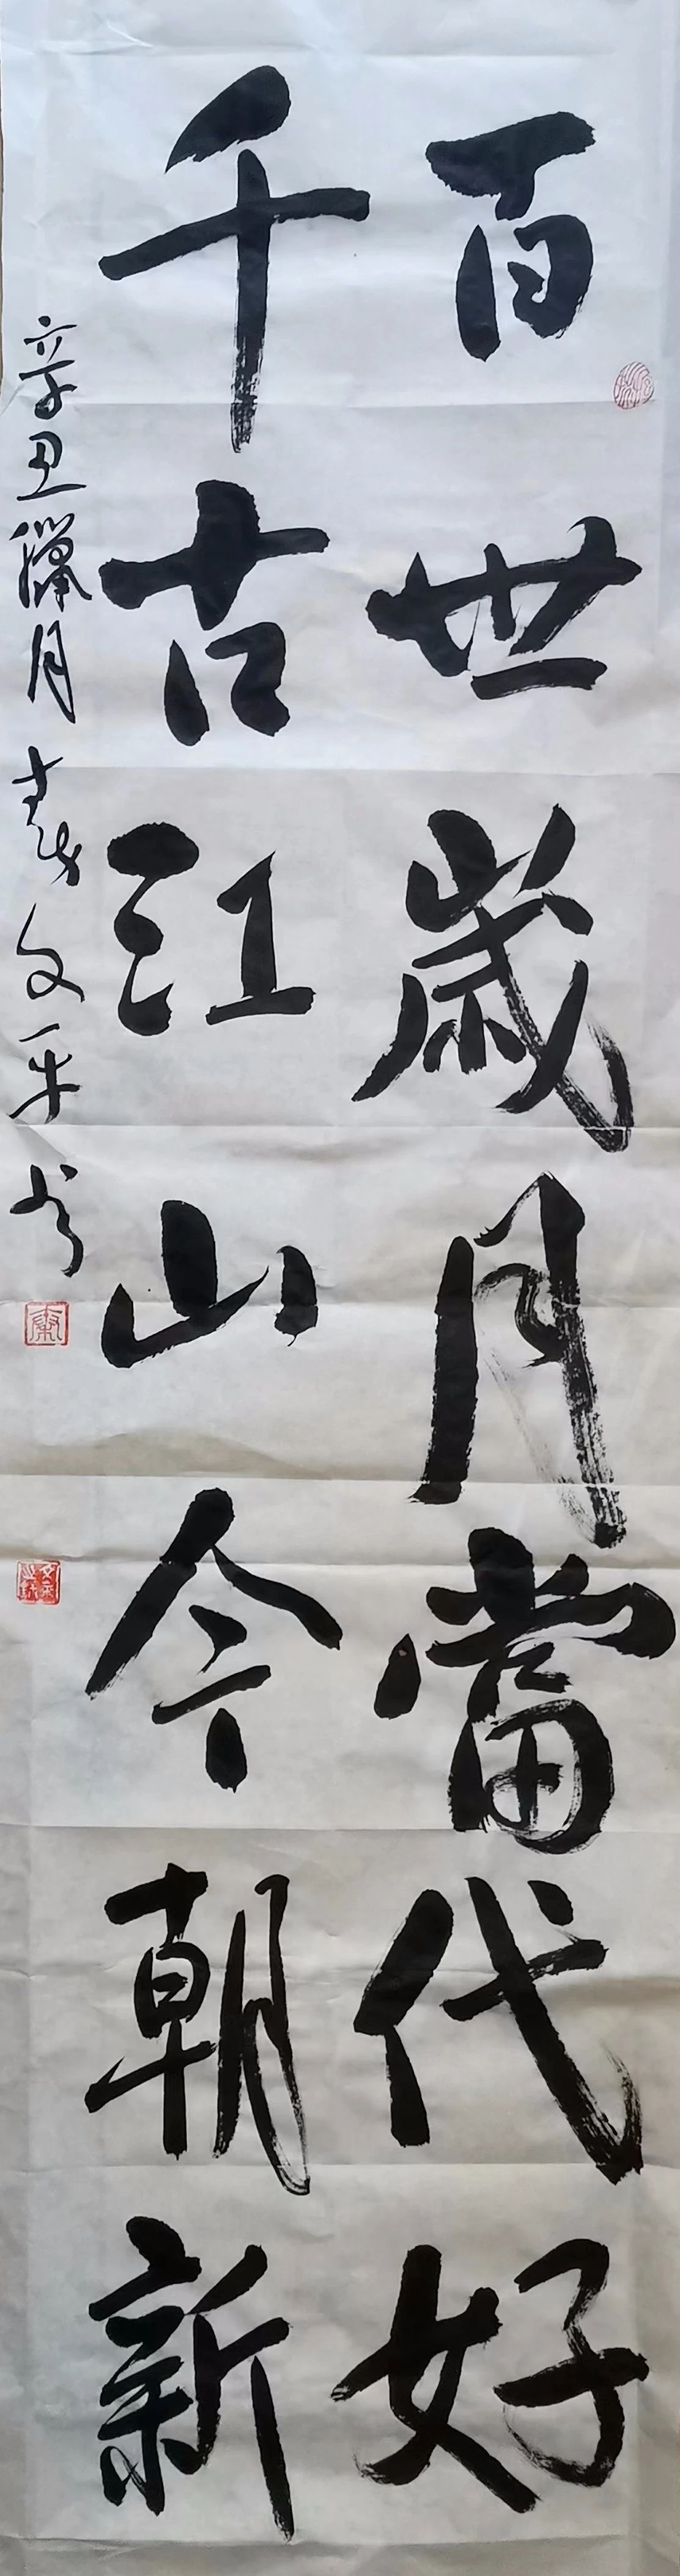 百世歲月當代好
千古江山今朝新
辛丑臘月袁文平书